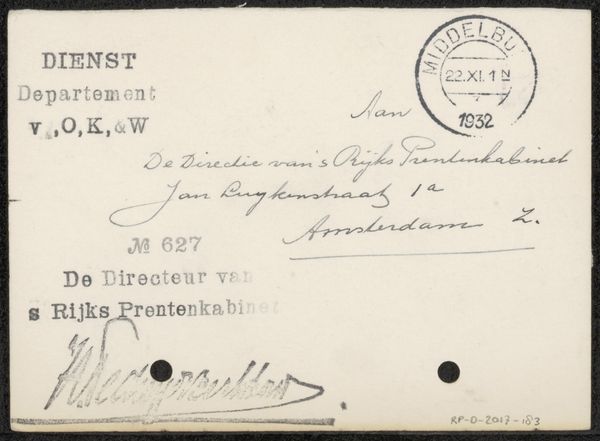 DIENST
Departement
v ,O,K,&W
MIDDELBU
22.XI.1 N
1932
Aan
De Directie van's Rijks Prentenkabinet
Jan Luykenstraat 1a
Amsterdam Z.
№ 627
De Directeur van
s Rijks Prentenkabinet
RP-D-2017-183